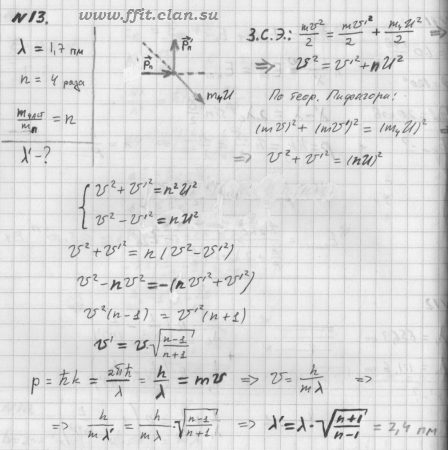 www.ffit.clan.su
№13.
λ = 1,7 пм
n = 4 раза
m част / m n = n
λ' - ?
P⃗n P⃗n' m ч U
З.С.Э.: mv²/2 = mv'²/2 + m ч U²/2 ⇒
⇒ v² = v'² + nU²
По теор. Пифагора:
(mv)² + (mv')² = (m ч U)² ⇒
⇒ v² + v'² = (nU)²
{ v² + v'² = n²U²
v² - v'² = nU²
v² + v'² = n(v² - v'²)
v² - nv² = -(nv'² + v'²)
v²(n-1) = v'²(n+1)
v' = v√(n-1 / n+1)
p = ħk = 2πħ/λ = h/λ = mv ⇒ v = h/mλ ⇒
⇒ h/mλ' = h/mλ · √(n-1 / n+1) ⇒ λ' = λ · √(n+1 / n-1) = 2,4 пм